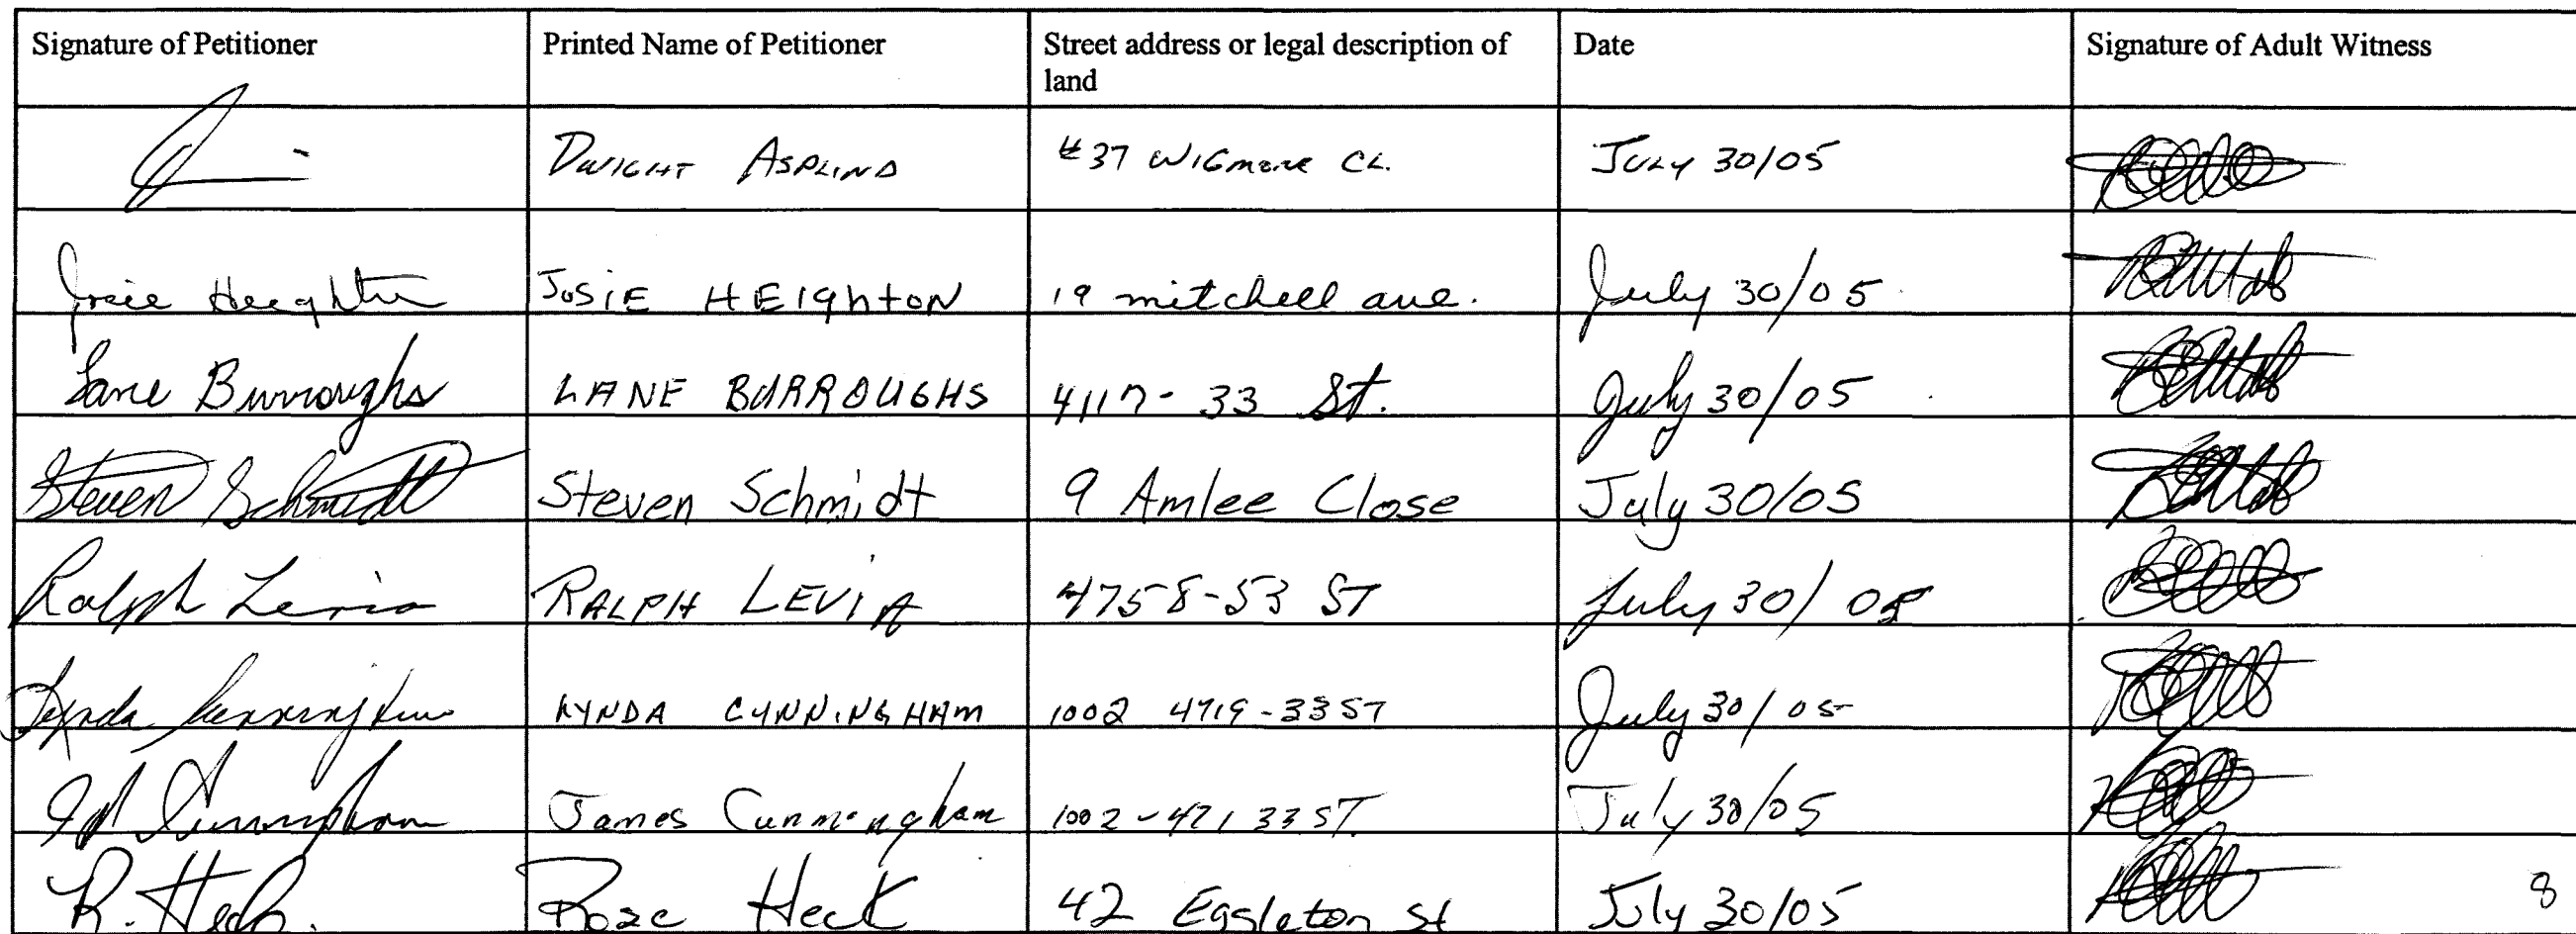 Signature of Petitioner Printed Name of Petitioner Street address or legal description of land Date Signature of Adult Witness
DWIGHT ASPLIND #37 WIGmore CL. JULY 30/05
Josie Heighton JOSIE HEIghtON 19 mitchell ave. July 30/05
Lane Burroughs LANE BURROUGHS 4117- 33 St. July 30/05
Steven Schmidt Steven Schmidt 9 Amlee Close July 30/05
Ralph Levia RALPH LEVIA 4758-53 ST July 30/05
Lynda Cunningham LYNDA CUNNINGHAM 1002 4719-33ST July 30/05
Cunningham James Cunningham 1002-471 33 ST. July 30/05
R. Heck. Rose Heck 42 Eggleton St July 30/05
8